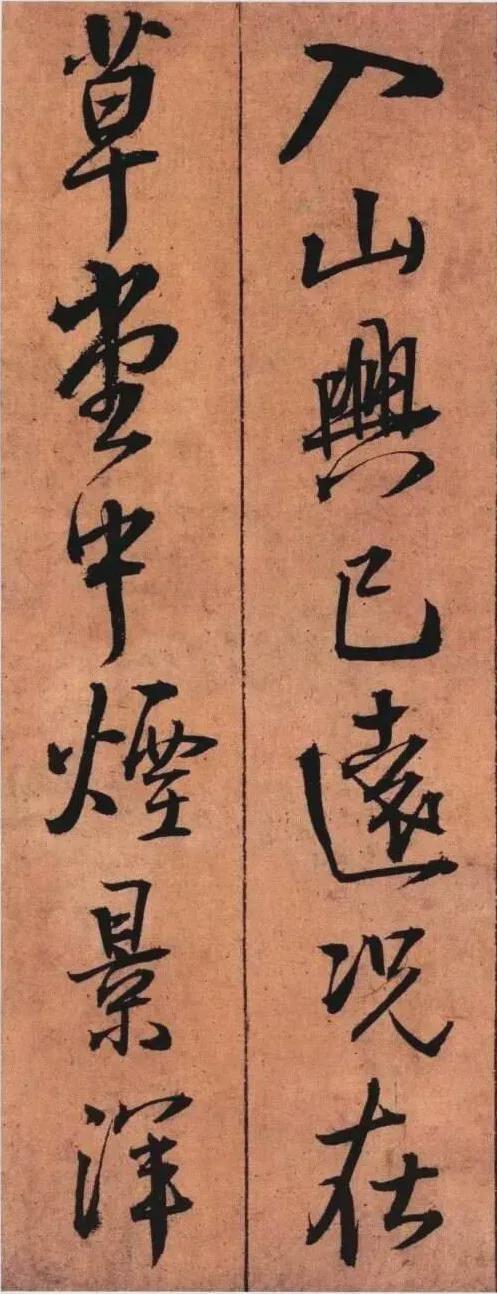 入山興已遠况在
草堂中煙景渾